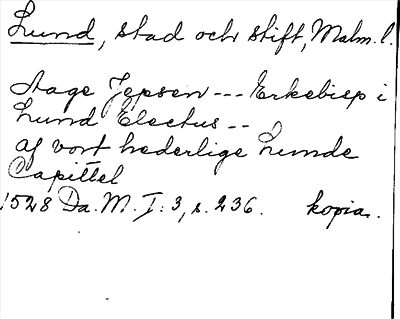 Lund, stad och stift, Malm. l.
Aage Jepsen --- Erkebisp i
Lund Electus --
af vort hederlige Lunde
Capittel
1528 Da. M. I: 3, s. 236. kopia.